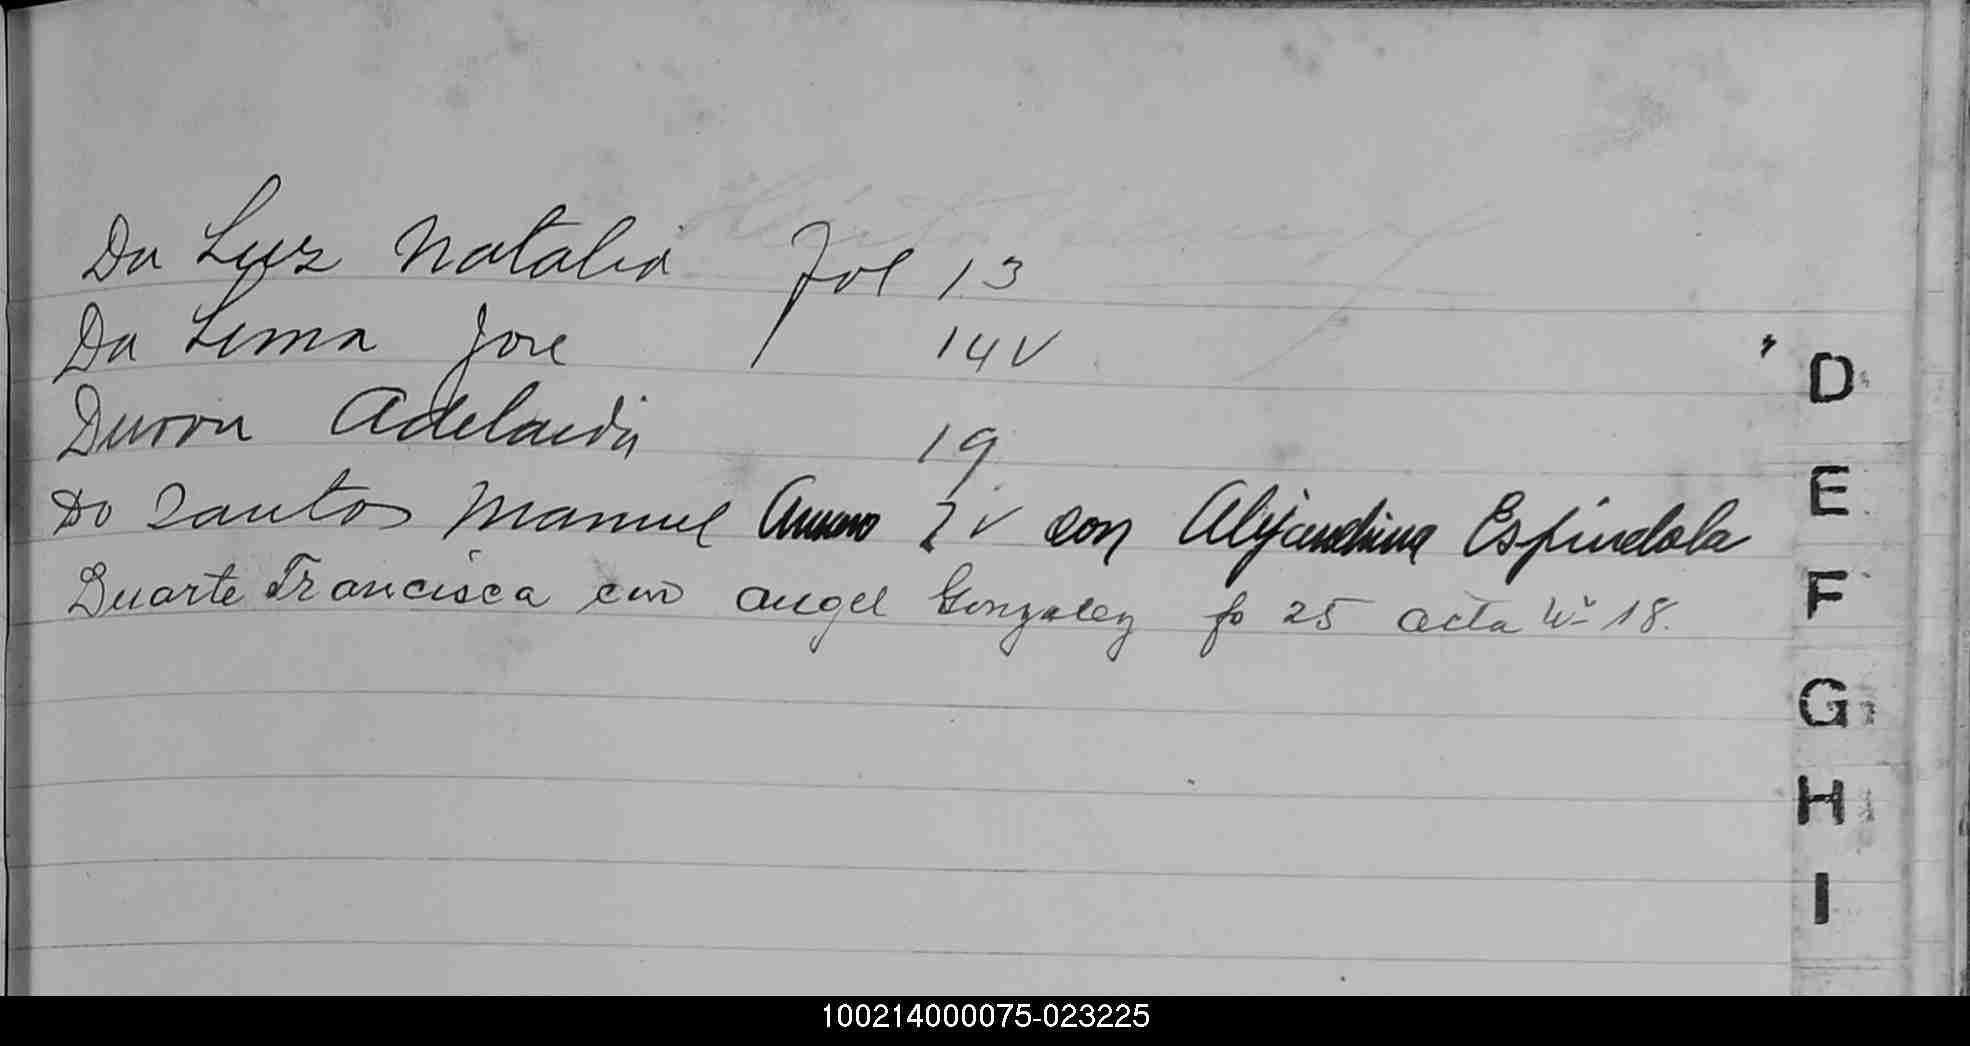 Da Luz Natalia Fol 13
Da Lima Jose 14V
D
Duron Adelaida 19
E
Do Santos Manuel 2v con Alejandrina Espindola
Duarte Francisca con Angel Gonzalez fo 25 acta Nº 18.
F
G
H
I
100214000075-023225